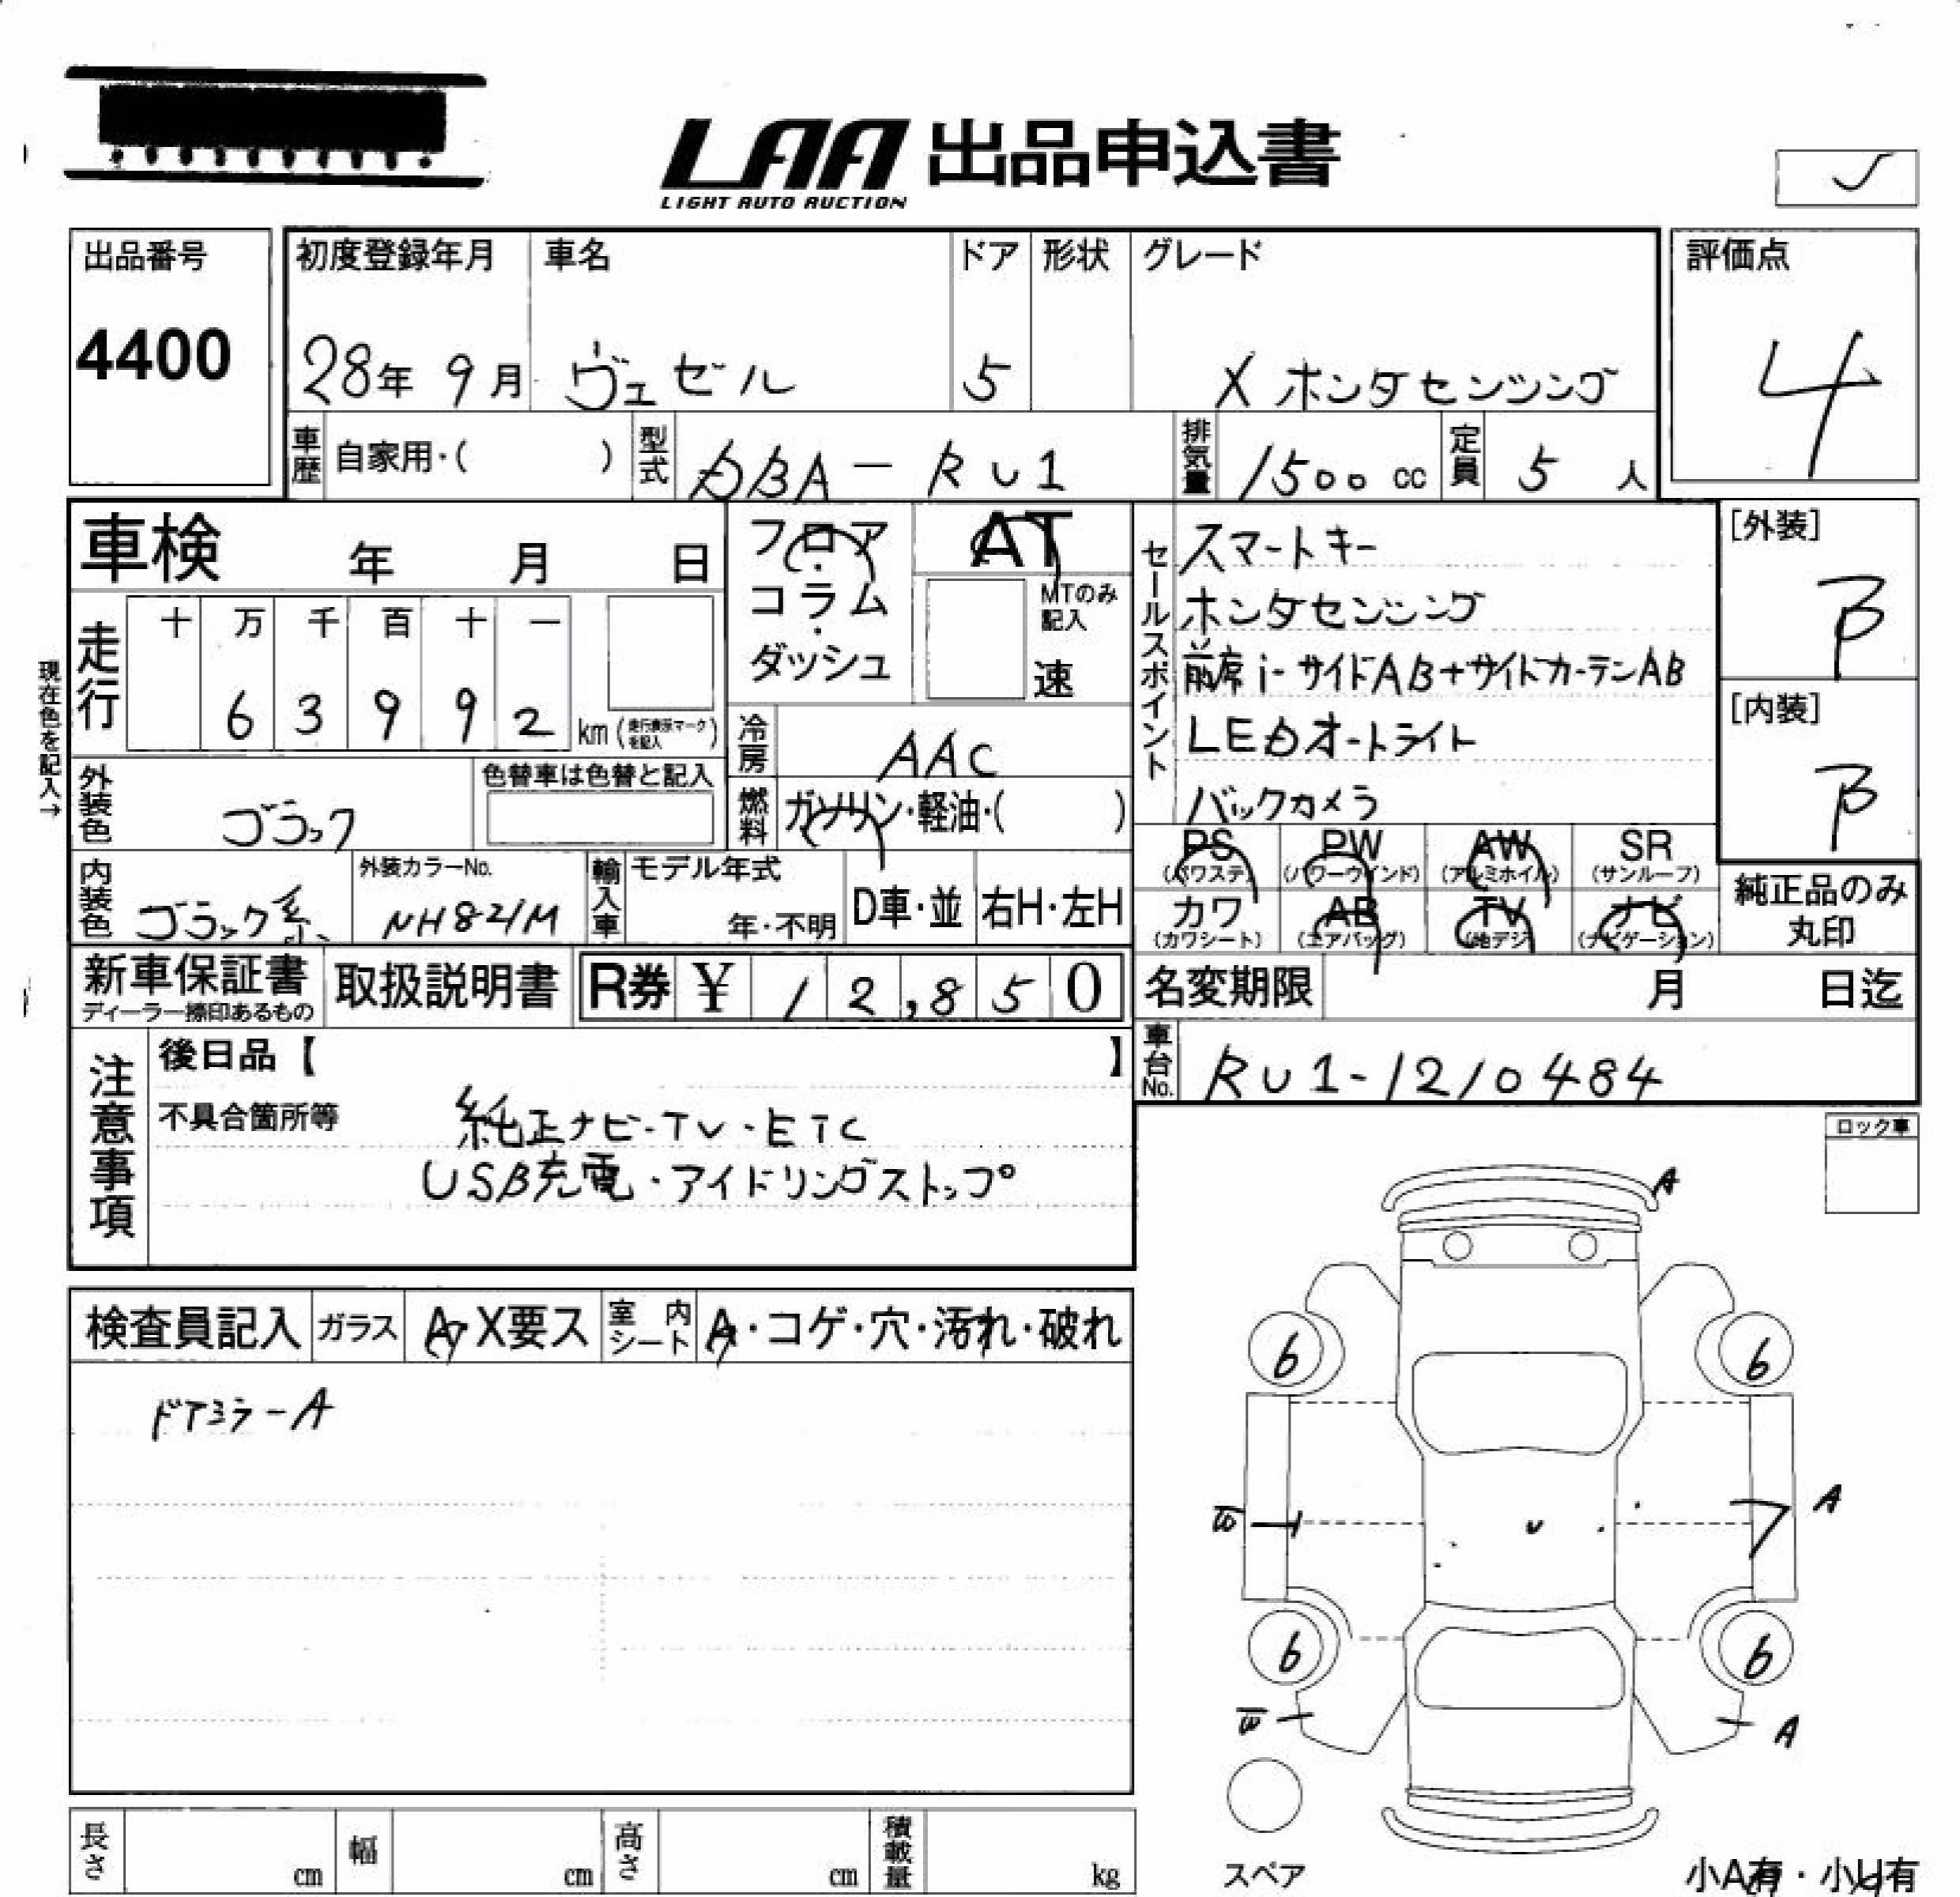 LAA 出品申込書
LIGHT AUTO AUCTION
出品番号
4400
初度登録年月 車名 ドア 形状 グレード
28年 9月 ヴェゼル 5 X ホンダセンシング
評価点
4
車歴 自家用・( ) 型式 DBA-RU1 排気量 1500cc 定員 5人
車検 年 月 日
フロア・コラム・ダッシュ
AT
MTのみ記入
速
セールスポイント
スマートキー
ホンダセンシング
前席i-サイドAB+サイドカーテンAB
LEDオートライト
バックカメラ
[外装]
B
[内装]
B
現在色を記入→
走行 十 万 千 百 十 一
6 3 9 9 2 km(走行表示マークを記入)
冷房 AAC
外装色 ブラック 色替車は色替と記入
燃料 ガソリン・軽油・( )
内装色 ブラック系 外装カラーNo. NH821M
輸入車 モデル年式 年・不明 D車・並 右H・左H
PS (パワステ) PW (パワーウインド) AW (アルミホイル) SR (サンルーフ)
カワ (カワシート) AB (エアバッグ) TV (地デジ) ナビ (ナビゲーション)
純正品のみ丸印
新車保証書 ディーラー捺印あるもの 取扱説明書 R券 ¥ 12,850
名変期限 月 日迄
車台No. RU1-1210484
注意事項
後日品【 】
不具合箇所等
純正ナビ・TV・ETC
USB充電・アイドリングストップ
ロック車
検査員記入 ガラス A・X要ス 室内シート A・コゲ・穴・汚れ・破れ
ドアミラーA
A
6 6
A
6 6
A
スペア
長さ cm 幅 cm 高さ cm 積載量 kg
小A有・小U有